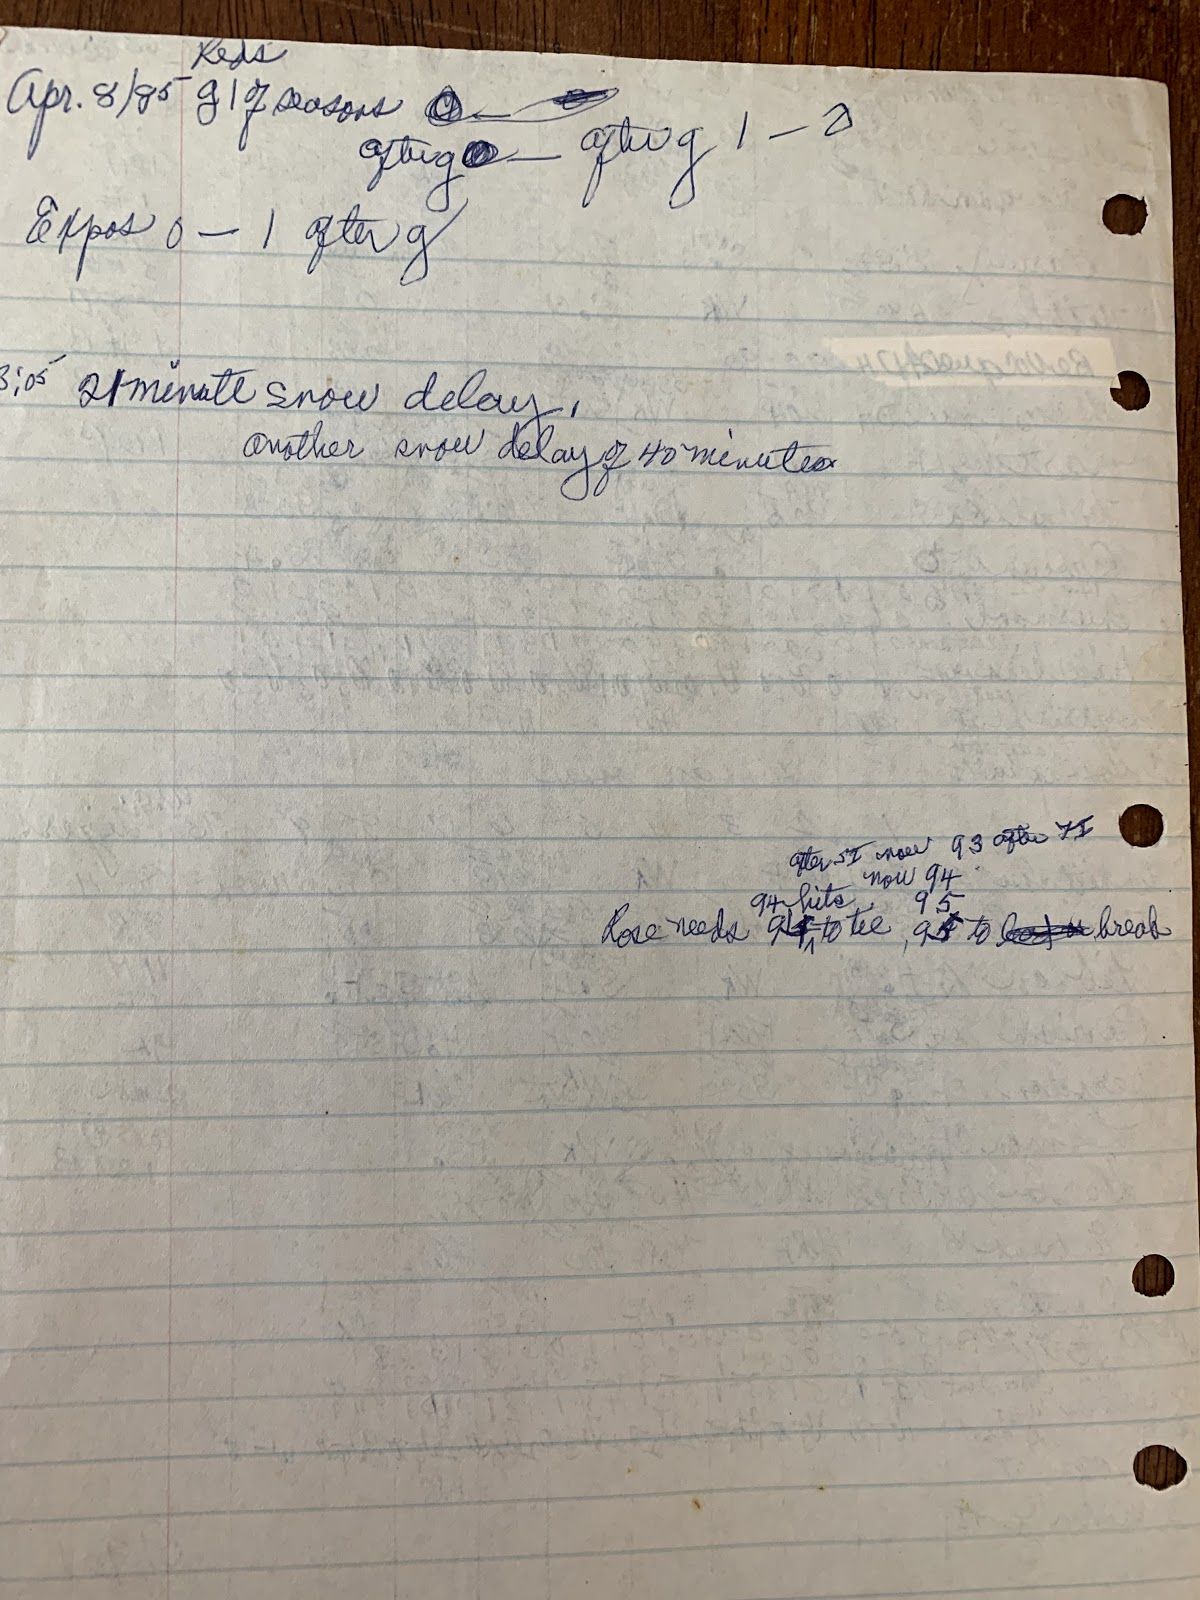 Reds
Apr. 8/85 g 1 of seasons
after g — after g 1 – 0
Expos 0 – 1 after g
3:05 21 minute snow delay,
another snow delay of 40 minutes
after 5I now 93 after 7I
now 94
94 hits 95
Rose needs to tie, to break